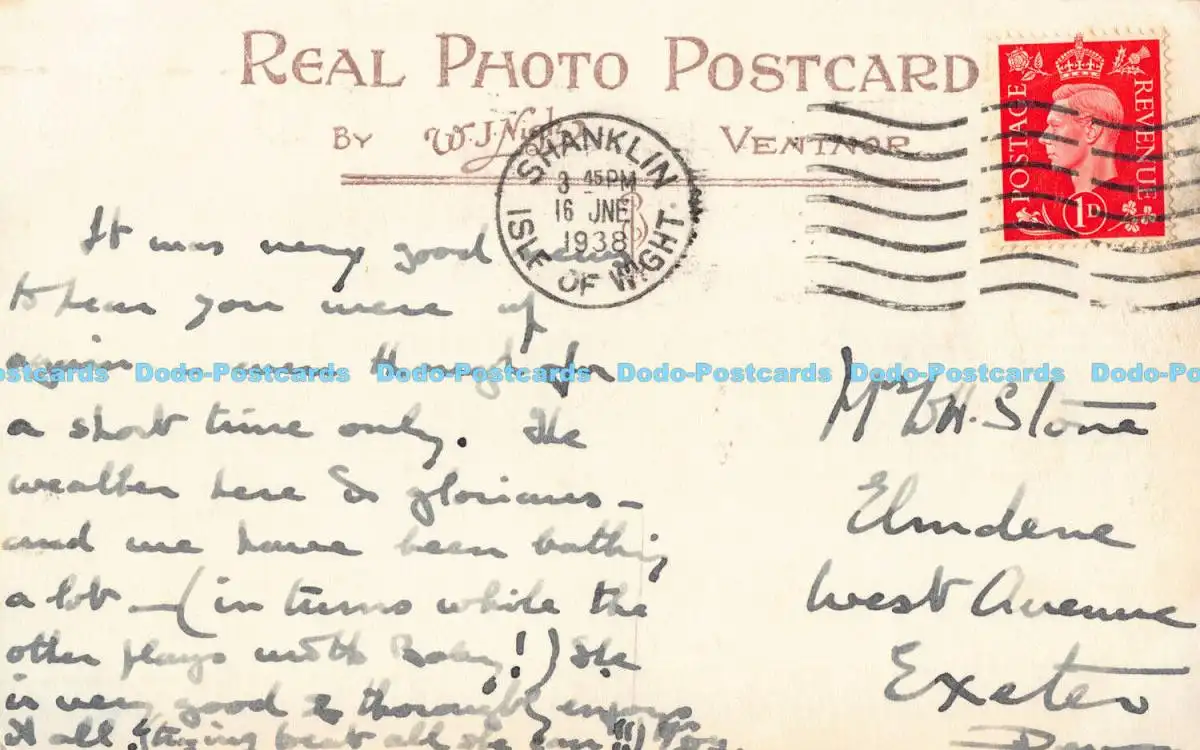 REAL PHOTO POSTCARD
BY W.J. Nigh VENTNOR
SHANKLIN
3 45 PM
16 JNE
1938
ISLE OF WIGHT.
POSTAGE REVENUE
1D
It was very good news
to hear you were up
again - even though for
Dodo-Postcards Dodo-Postcards Dodo-Postcards Dodo-Postcards Dodo-Postcards
a short time only. The
weather here is glorious -
and we have been bathing
a lot - (in turns while the
other plays with Baby!) She
is very good & thoroughly enjoys
it all. beat all she can!!)
Mrs W.H. Stone
Elmdene
West Avenue
Exeter